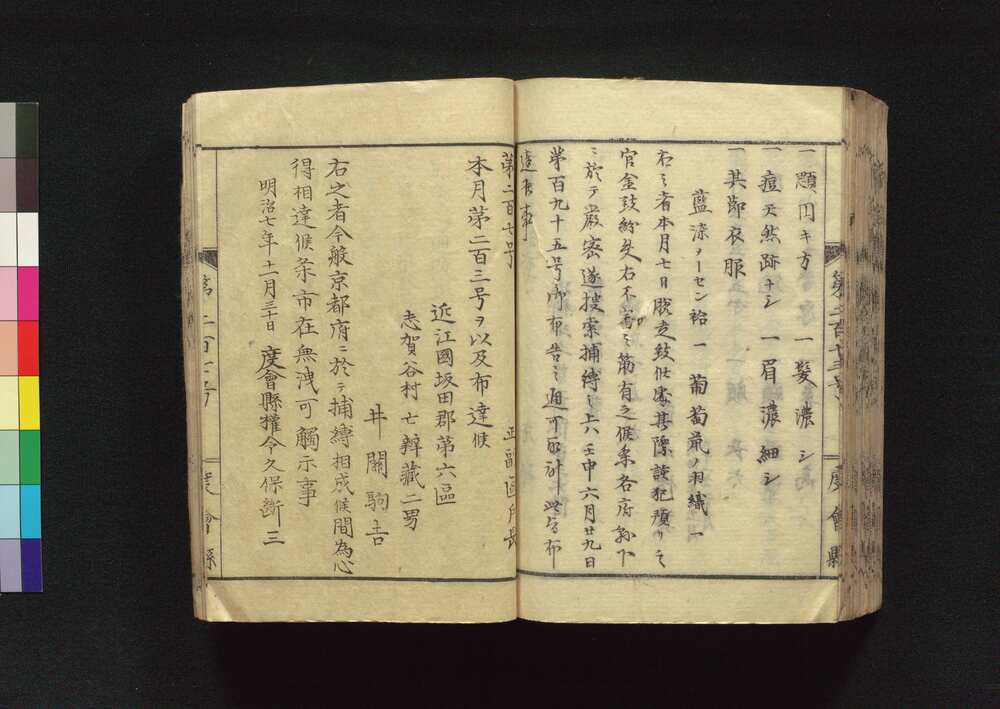 一 顋円キ方 一 髪濃シ
一 痘天然跡ナシ 一 眉濃細シ
一 其節衣服
藍漆ヲーセン袷一 葡萄鼠ノ羽織一
右之者本月七日脱走致候處其際該犯預リノ
官金致紛失右不審之筋有之候条各府縣下
ニ於テ厳密遂捜索捕縛之上ハ壬申六月廿九日
第百九十五号御布告之通可取計此旨布
達候事
第二百七号 正副區戸長
本月第二百三号ヲ以及布達候
近江國坂田郡第六區
志賀谷村 亡辨藏二男
井關駒吉
右之者今般京都府ニ於テ捕縛相成候間為心
得相達候条市在無洩可觸示事
明治七年十一月三十日 度會縣權令久保断三
度會縣
度會縣